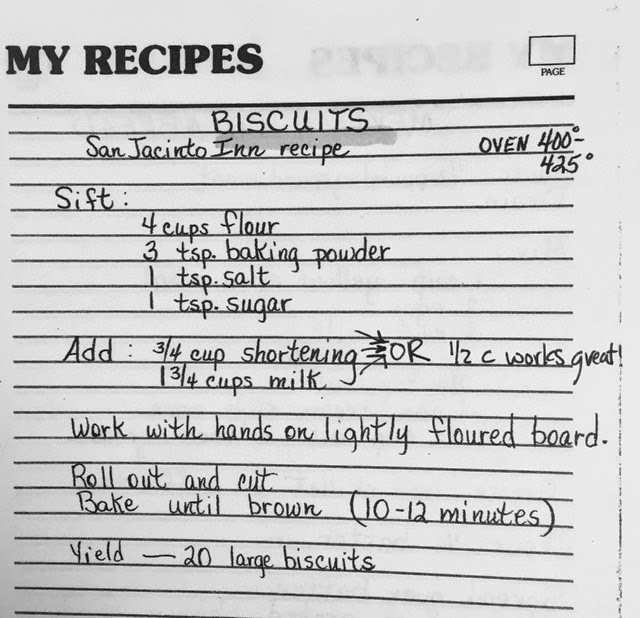 MY RECIPES
PAGE
BISCUITS
San Jacinto Inn recipe OVEN 400°-
425°
Sift:
4 cups flour
3 tsp. baking powder
1 tsp. salt
1 tsp. sugar
Add: 3/4 cup shortening OR 1/2 c works great!
1 3/4 cups milk
Work with hands on lightly floured board.
Roll out and cut
Bake until brown (10-12 minutes)
Yield — 20 large biscuits